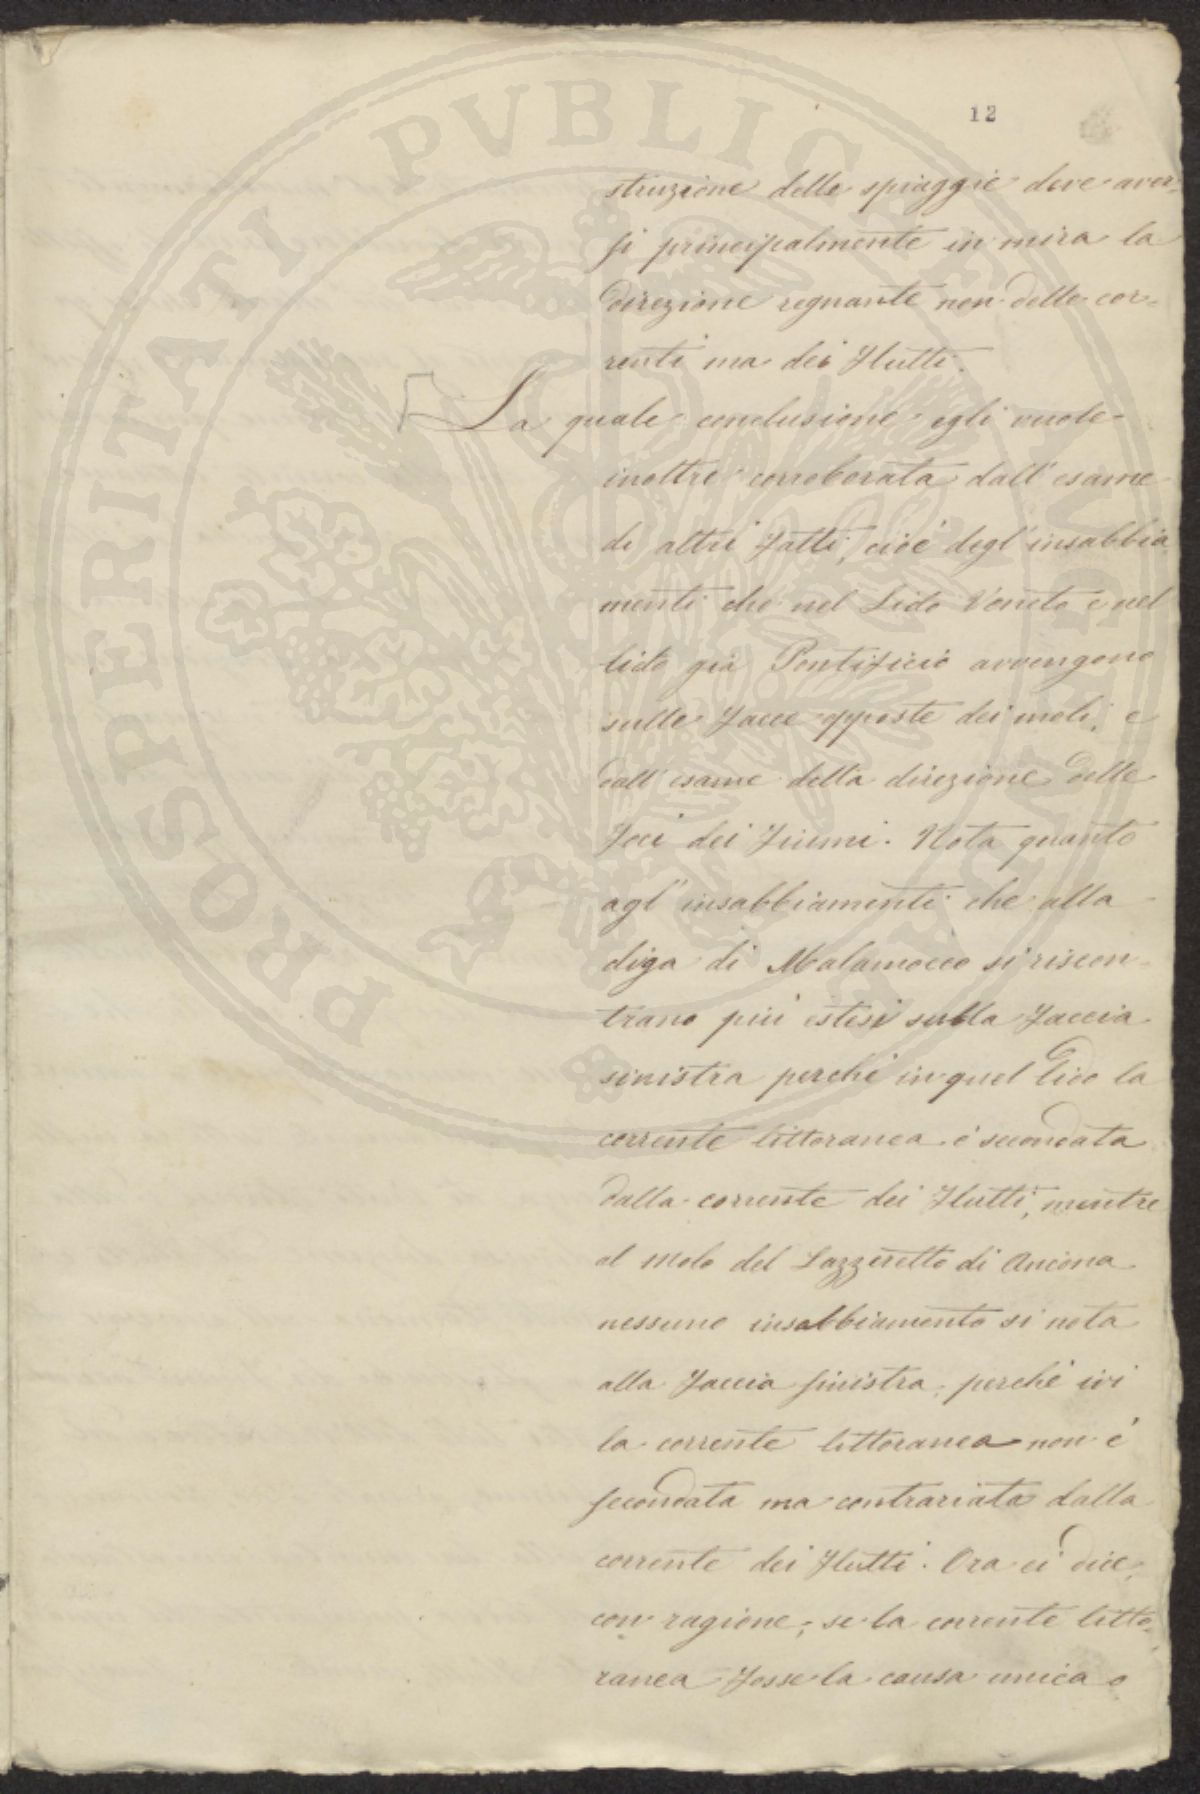 12
struzione delle spiaggie deve aver-
si principalmente in mira la
direzione regnante non delle cor-
renti ma dei flutti.
La quale conclusione egli vuole
inoltre corroborata dall'esame
di altri fatti, cioè degl'insabbia
menti che nel Lido Veneto e nel
lido già Pontificio avvengono
sulle facce opposte dei moli, e
dall'esame della direzione delle
foci dei fiumi. Nota quanto
agl'insabbiamenti che alla
diga di Malamocco si riscon-
trano più estesi sulla faccia
sinistra perchè in quel Lido la
corrente littoranea è secondata
dalla corrente dei flutti, mentre
al Molo del Lazzeretto di Ancona
nessuno insabbiamento si nota
alla faccia sinistra, perchè ivi
la corrente littoranea non è
secondata ma contrariata dalla
corrente dei flutti. Ora ei dice,
con ragione, se la corrente litto-
ranea fosse la causa unica o
PROSPERITATI PVBLICAE AVGENDAE